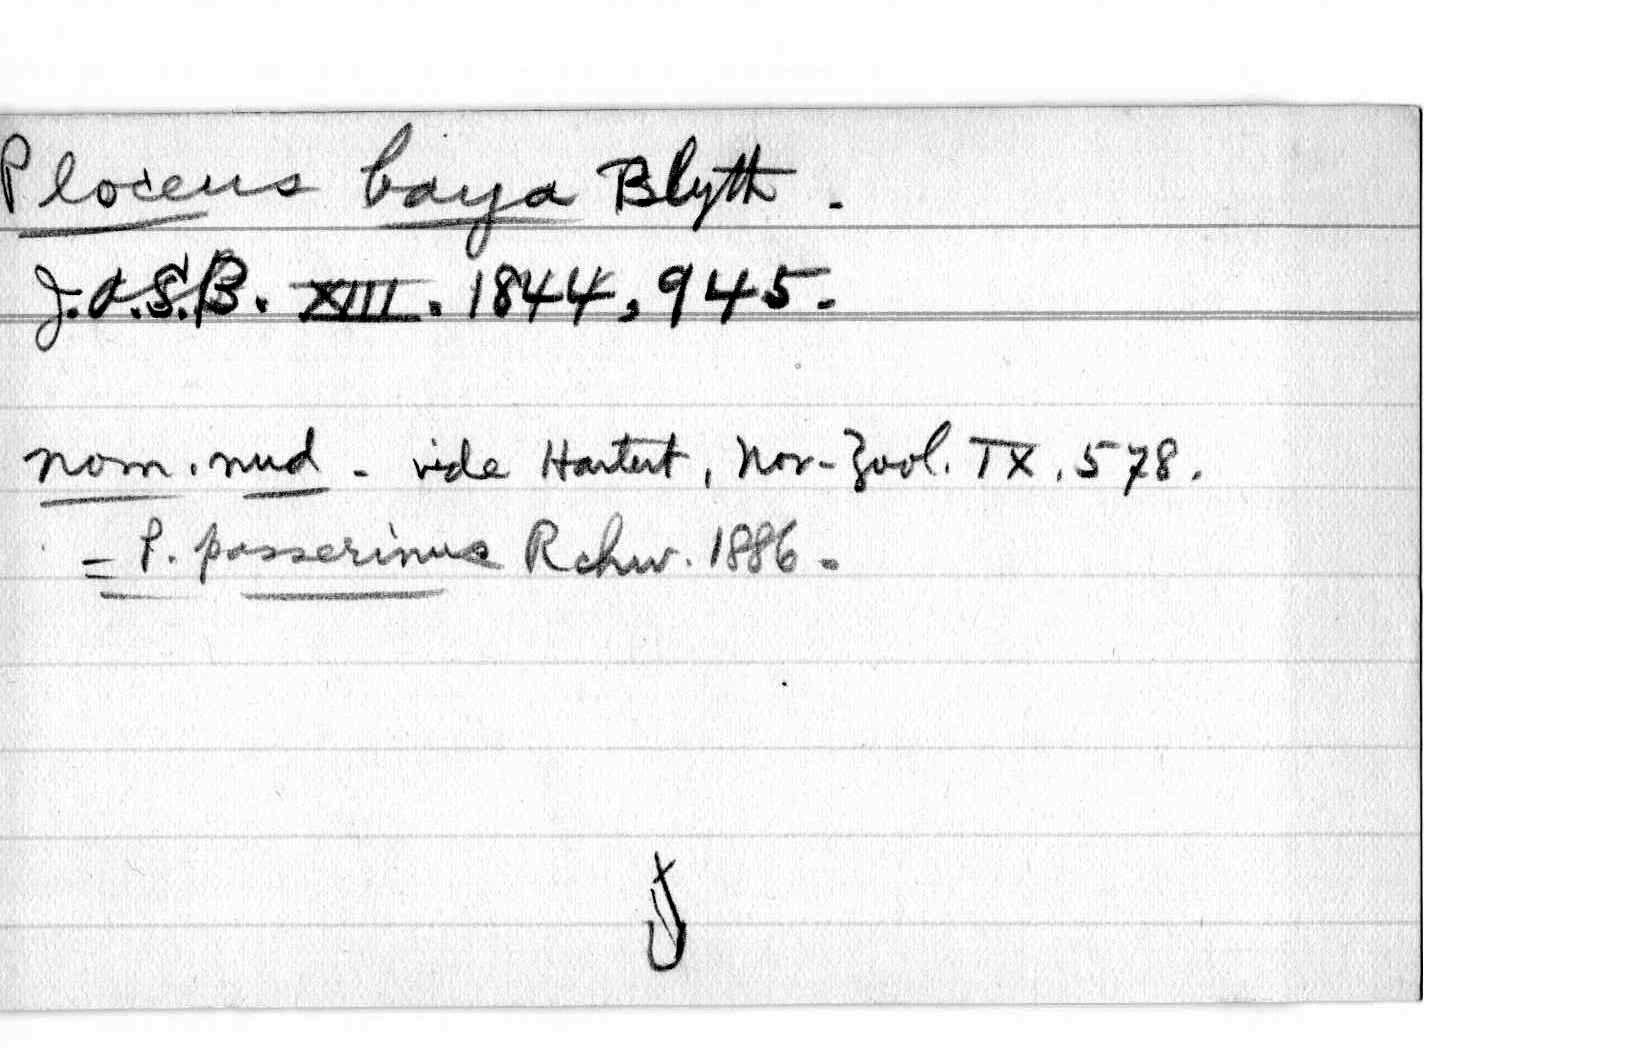 Ploceus baya Blyth.
J.A.S.B. XIII. 1844, 945.
nom. nud - vide Hartert, Nov-Zool. IX. 578.
= P. passerinus Rchw. 1886.